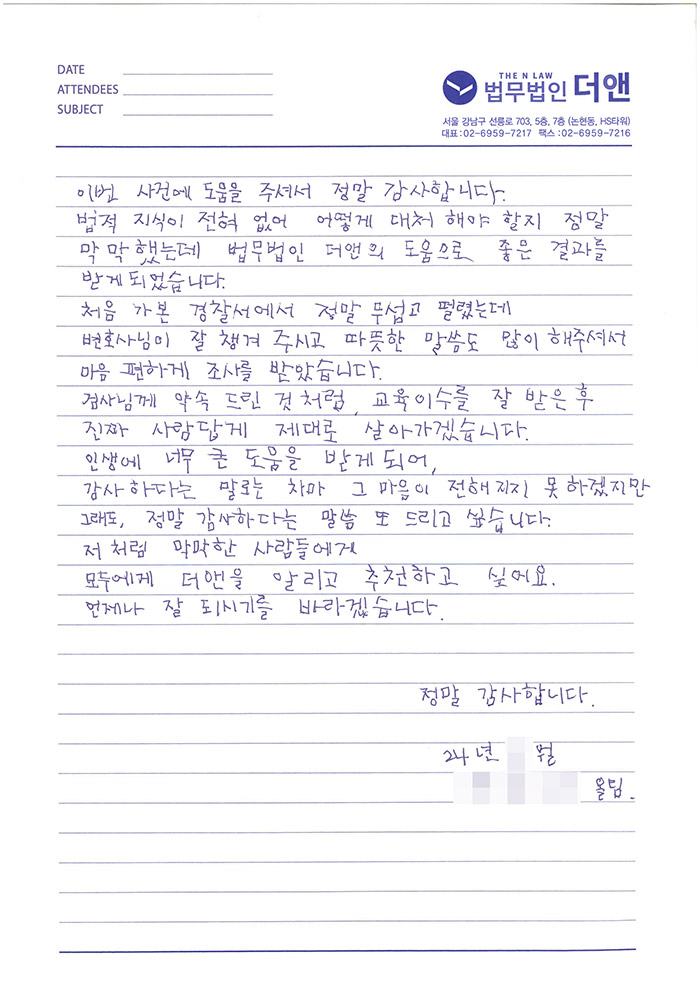 DATE
ATTENDEES
SUBJECT
THE N LAW
법무법인 더앤
서울 강남구 선릉로 703, 5층, 7층 (논현동, HS타워)
대표:02-6959-7217 팩스:02-6959-7216
이번 사건에 도움을 주셔서 정말 감사합니다.
법적 지식이 전혀 없어 어떻게 대처 해야 할지 정말
막막했는데 법무법인 더앤의 도움으로 좋은 결과를
받게 되었습니다.
처음 가본 경찰서에서 정말 무섭고 떨렸는데
변호사님이 잘 챙겨 주시고 따뜻한 말씀도 많이 해주셔서
마음 편하게 조사를 받았습니다.
검사님께 약속 드린 것 처럼, 교육이수를 잘 받은 후
진짜 사람답게 제대로 살아가겠습니다.
인생에 너무 큰 도움을 받게 되어,
감사하다는 말로는 차마 그 마음이 전해지지 못 하겠지만
그래도, 정말 감사하다는 말씀 또 드리고 싶습니다.
저 처럼 막막한 사람들에게
모두에게 더앤을 알리고 추천하고 싶어요.
언제나 잘 되시기를 바라겠습니다.
정말 감사합니다.
24년 월
올림.